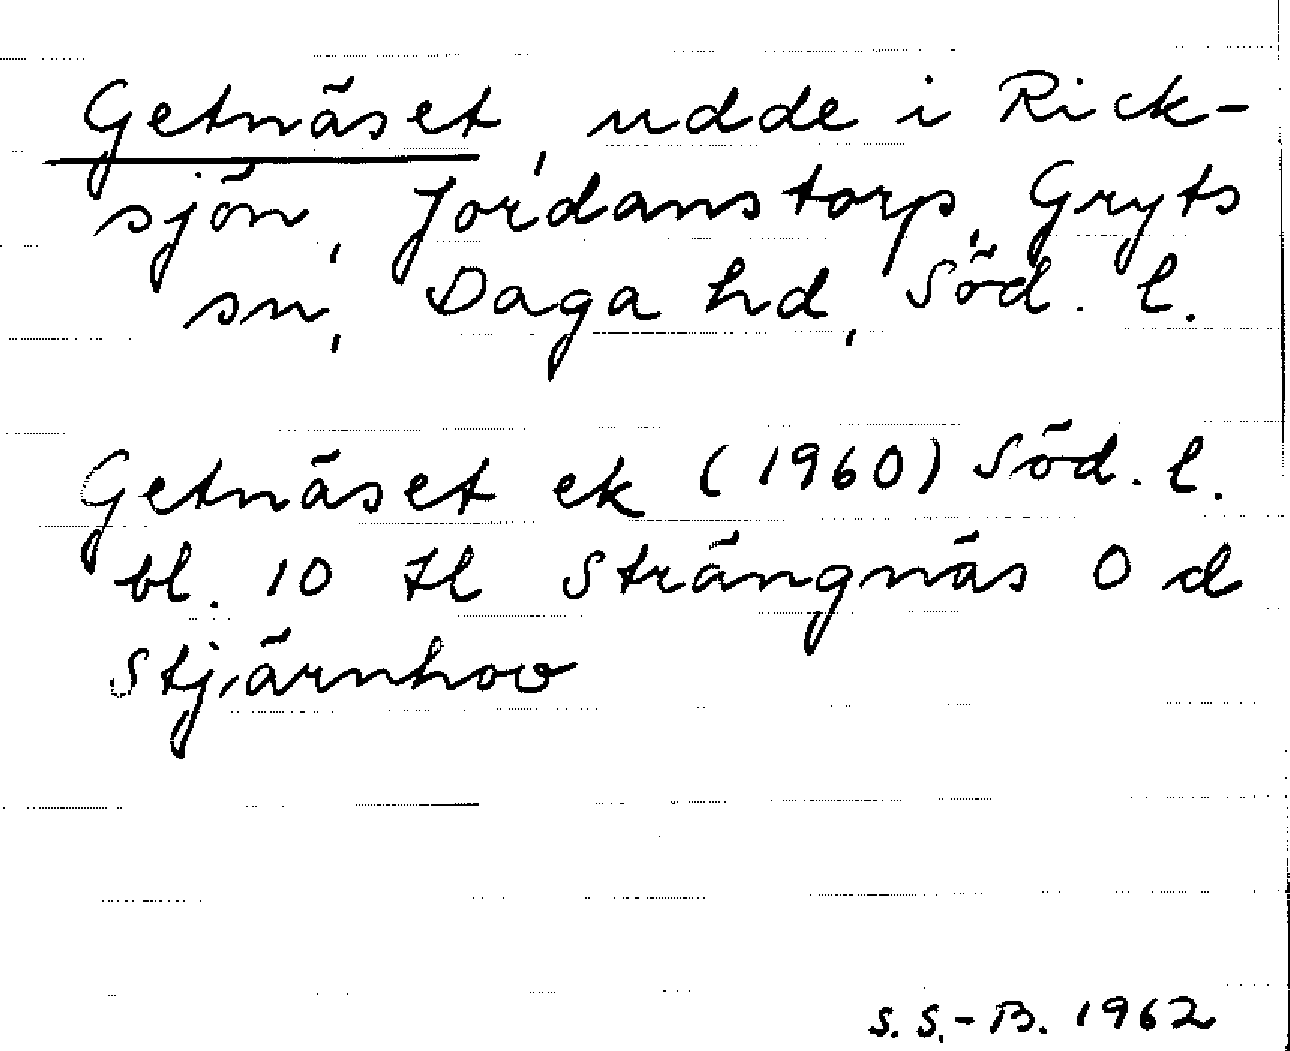 Getnäset, udde i Rick-
sjön, Jordanstorp, Gryts
sn, Daga hd, Söd. l.
Getnäset ek (1960) Söd. l.
bl. 10 tl Strängnäs O d
Stjärnhov
S. S.-B. 1962